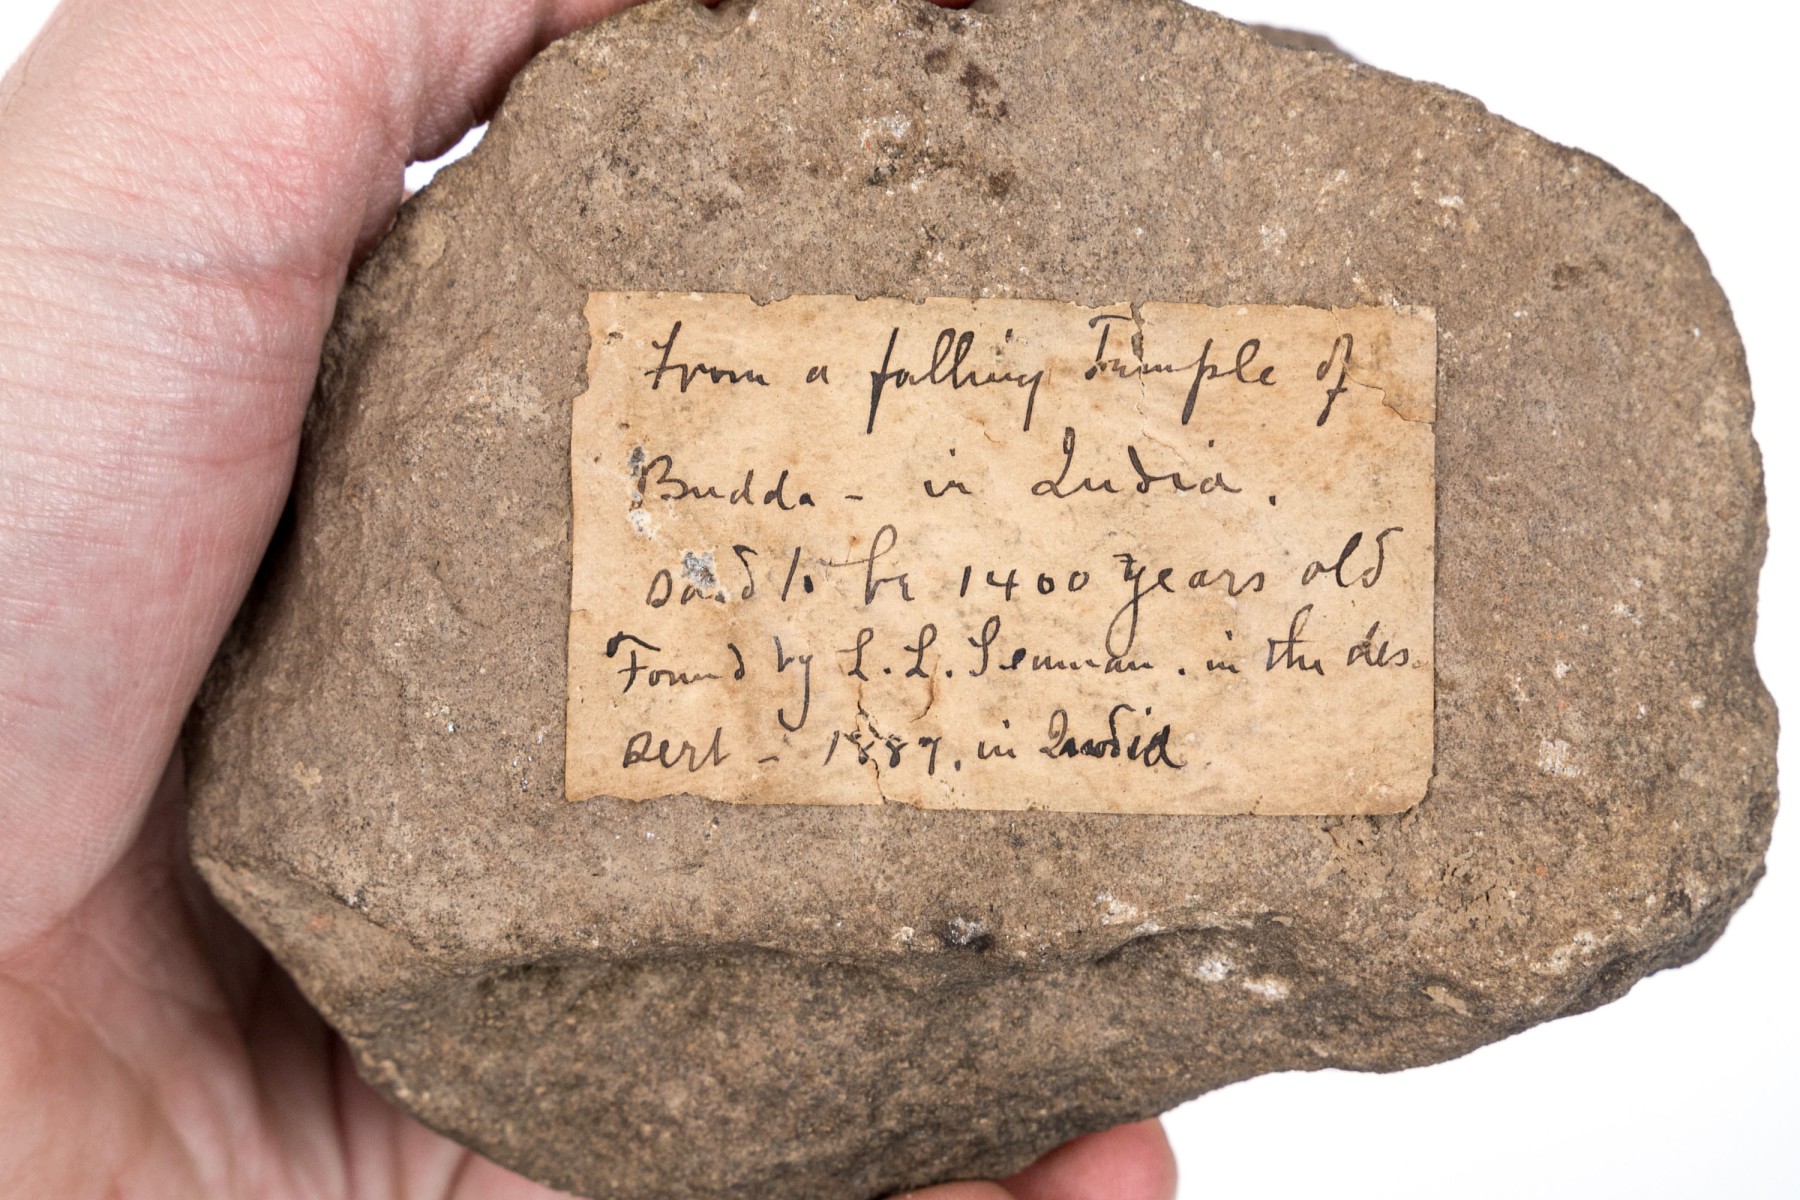 From a falling Temple of
Budda - in India.
said to be 1400 years old
Found by L. L. Seaman. in the des-
sert - 1887. in India